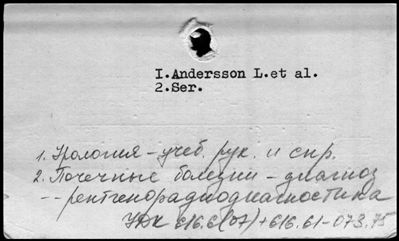 I.Andersson L.et al.
2.Ser.
1. Урология – учеб. рук. и спр.
2. Почечные болезни – диагноз
-- рентгенорадиодиагностика
УДК 616.6(07)+616.61-073.75